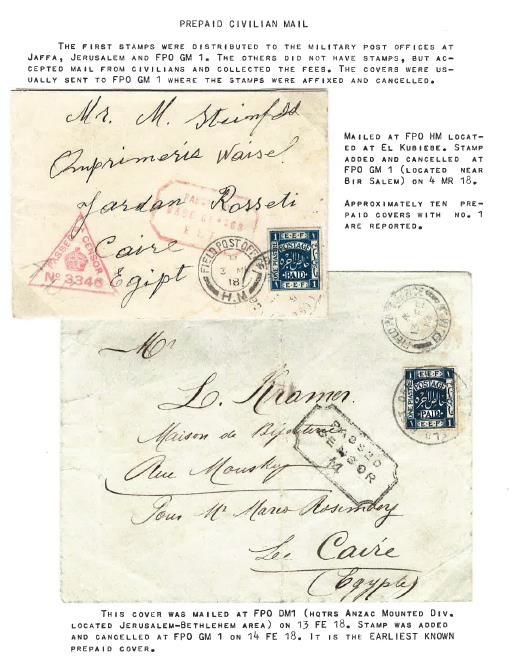 PREPAID CIVILIAN MAIL
THE FIRST STAMPS WERE DISTRIBUTED TO THE MILITARY POST OFFICES AT
JAFFA, JERUSALEM AND FPO GM 1. THE OTHERS DID NOT HAVE STAMPS, BUT AC-
CEPTED MAIL FROM CIVILIANS AND COLLECTED THE FEES. THE COVERS WERE US-
UALLY SENT TO FPO GM 1 WHERE THE STAMPS WERE AFFIXED AND CANCELLED.
Mr. M. Steinfeld
Imprimerie Waisel
Jardan Rosseti
Caire
Egipt
PASSED
BASE CENSOR
E.E.F.
PASSED CENSOR
No 3346
FIELD POST OFFICE
3 M
18
H.M
E·E·F
POSTAGE
PAID
ONE PIASTRE
1 E·E·F 1
MAILED AT FPO HM LOCAT-
ED AT EL KUBIEBE. STAMP
ADDED AND CANCELLED AT
FPO GM 1 (LOCATED NEAR
BIR SALEM) ON 4 MR 18.
APPROXIMATELY TEN PRE-
PAID COVERS WITH NO. 1
ARE REPORTED.
Mr
L. Kramer.
Maison de Bijouterie
Rue Mousky
Pour Mr Marco Rosemberg
Le Caire
(Egypte)
PASSED
CENSOR
E·E·F
POSTAGE
PAID
ONE PIASTRE
1 E·E·F 1
THIS COVER WAS MAILED AT FPO DM1 (HQTRS ANZAC MOUNTED DIV.
LOCATED JERUSALEM-BETHLEHEM AREA) ON 13 FE 18. STAMP WAS ADDED
AND CANCELLED AT FPO GM 1 ON 14 FE 18. IT IS THE EARLIEST KNOWN
PREPAID COVER.